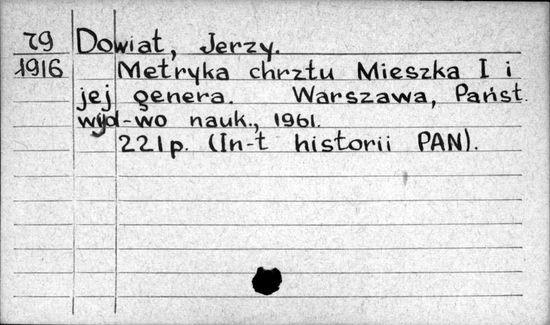 79 Dowiat, Jerzy.
1916 Metryka chrztu Mieszka I i
jej genera. Warszawa, Państ.
wyd-wo nauk., 1961.
221p. (In-t historii PAN).